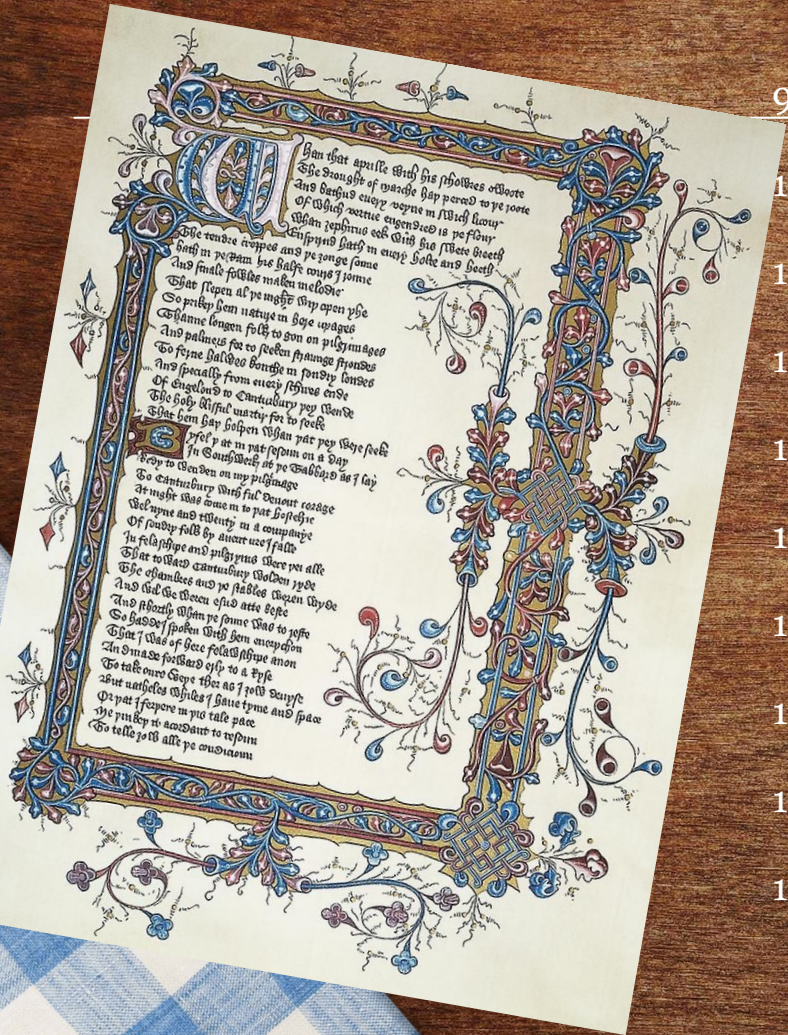 Whan that aprille with his schowres swoote
The drought of marche hap perced to pe roote
And bathud euery veyne in swich licour
Of which vertue engendred is pe flour
Whan zephirus eek with his swete breeth
Enspirud hath in euery holte and heeth
The tendre croppes and pe ȝonge sonne
hath in pe Ram his halfe cours I ronne
And smale fowles maken melodie
That slepen al pe night wip open yhe
So prikep hem nature in here corages
Thanne longen folk to gon on pilgrimages
And palmers for to seeken straunge strondes
To ferne halwes kouthe in sondry londes
And specially from euery schires ende
Of Engelond to Canturbury pey wende
The holy blisful martir for to seeke
That hem hap holpen whan pat pey were seeke
Byfel pat in pat sesoun on a day
In Southwerk at pe Tabbard as I lay
Redy to wenden on my pilgrimage
To Canturbury with ful deuout corage
At night was come in to pat hostelrie
Wel nyne and twenty in a companye
Of sondry folk by auenture I falle
In felaschipe and pilgryms were pei alle
That toward Canturbury wolden ryde
The chambres and pe stables weren wyde
And wel we weren esud atte beste
And schortly whan pe sonne was to reste
So hadde I spoken with hem euerychon
That I was of here felawschipe anon
And made forward erly to aryse
To take oure weye ther as I ȝow deuyse
But natheles whiles I haue tyme and space
Or pat I ferpere in pis tale pace
Me pinkep it acordant to resoun
To telle ȝow alle pe condicioun
9
1
1
1
1
1
1
1
1
1